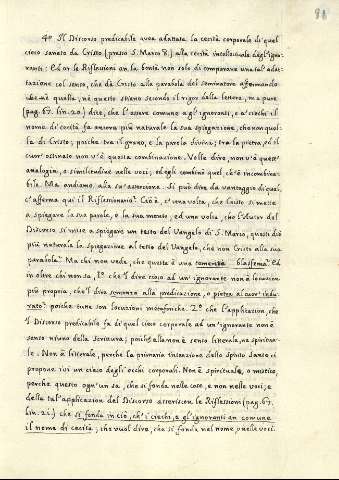 98
4° Il Discorso predicabile avea adattata la cecità corporale di quel
cieco sanato da Cristo (presso S. Marco 8.) alla cecità intellettuale degl'igno-
ranti. Ed or le Riflessioni an la bontà non solo di comparare una tal' adat-
tazione col senso, che dà Cristo alla parabola del seminatore affermando
che né quella, né questo stiano secondo il rigor della lettera, ma pure
(pag. 67. lin. 20.) dire, che l'essere comune agl'ignoranti, e a' ciechi il
nome di cecità fa ancora più naturale la sua spiegazione, che non quel
fa di Cristo; poiché tra il grano, e la parola divina; tra la pietra, ed il
cuor' ostinato non v'è questa combinazione. Volle dire, non v'è questa
analogia, o similitudine nelle voci; ed egli combinò quel, ch'è incombina-
bile. Ma andiamo alla sua asserzione. Si può dire da vantaggio di quel,
c'afferma qui il Riflessionario? Cioè, c'una volta, che Cristo si mette
a spiegare la sua parola, e la sua mente, ed una volta, che l'Autor del
Discorso si mise a spiegare un testo del Vangelo di S. Marco, questi diè
più naturale la spiegazione al testo del Vangelo, che non Cristo alla sua
parabola? Ma chi non vede, che questa è una temerità blasfema? Ed
in oltre chi non sa, 1.° che 'l dire cieco ad un' ignorante non è locuzion
più propria, che 'l dire semenza alla predicazione, o pietra al cuor' indu-
rato? poiché tutte son locuzioni metaforiche. 2.° che l'applicazion, che
'l Discorso predicabile fa di quel cieco corporale ad un' ignorante non è
senso niuno della scrittura; poiché alla non è senso litterale, né spiritua-
le. Non è litterale, perché la primaria intenzione dello Spirito Santo ci
propone ivi un cieco degli occhi corporali. Non è spirituale, o mistico,
perché questo ogn'un sa, che si fonda nelle cose, e non nelle voci; e
della tal' applicazione del Discorso asseriscon le Riflessioni (pag. 67.
lin. 21.) che si fonda in ciò, ch'i ciechi, e gl'ignoranti an comune
il nome di cecità; che vuol dire, che si fonda nel nome, o nelle voci.